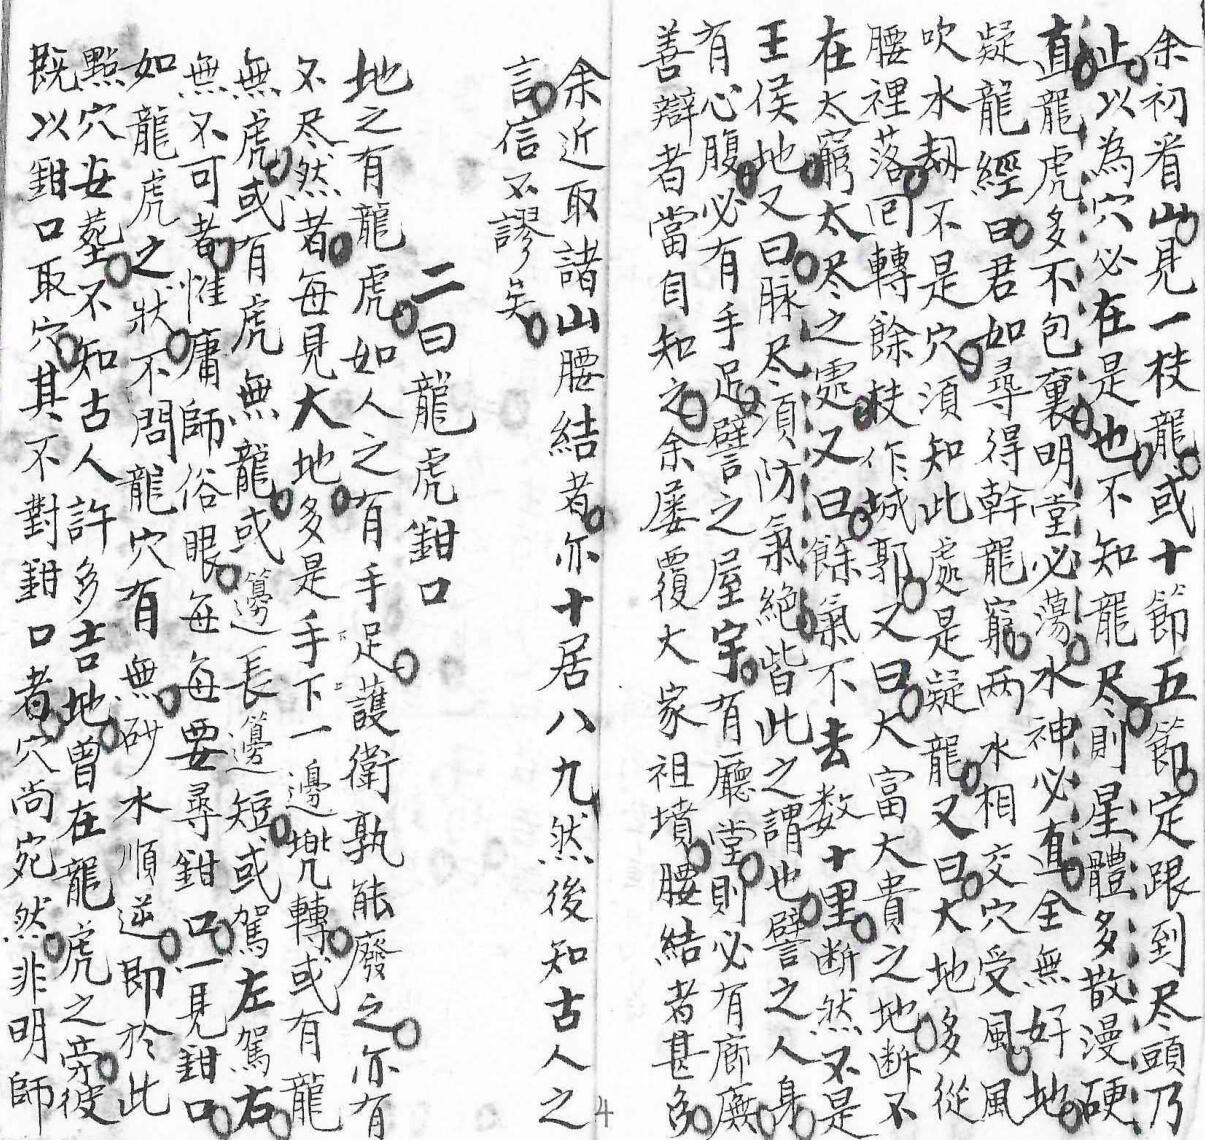 余初看山見一枝龍或十節五節定跟到尽頭乃
止以為穴必在是也不知龍尽則星體多散漫硬
直龍虎多不包裹明堂必蕩水神必直全無好地
凝龍經曰君如尋得幹龍窮两水相交穴受風風
吹水刼不是穴須知此處是凝龍又曰大地多從
腰裡落回轉餘枝作城郭又曰大富大貴之地断不
在太窮太尽之處又曰餘氣不去数十里断然不是
王侯地又曰脉尽須防氣絶皆此之謂也譬之人身
有心腹必有手足譬之屋宇有廳堂則必有廊廡
善辯者當自知之余屡覆大家祖墳腰結者甚多
余近取諸山腰結者亦十居八九然後知古人之
言信不謬矣
二曰龍虎鉗口
地之有龍虎如人之有手足護衛孰能廢之亦有
不尽然者每見大地多是手下一邊兜轉或有龍
無虎或有虎無龍或邊長邊短或駕左駕右
無不可者惟庸師俗眼每每要尋鉗口一見鉗口
如龍虎之狀不問龍穴有無砂水順逆即於此
點穴安塟不知古人許多吉地曾在龍虎之旁彼
既以鉗口取穴其不對鉗口者穴尚宛然非明師
4